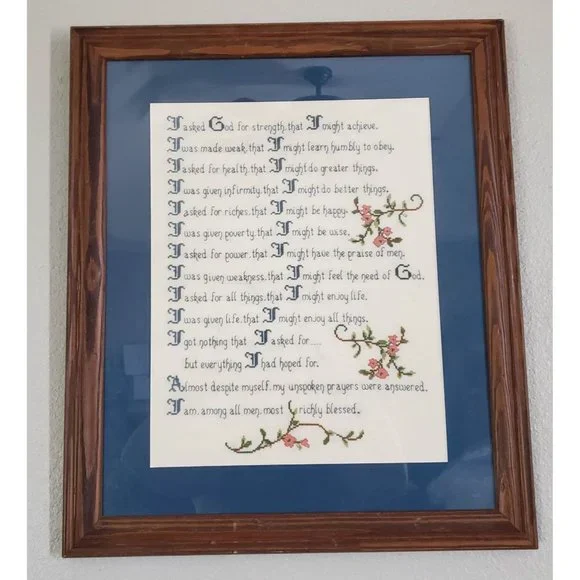 I asked God for strength, that I might achieve.
I was made weak, that I might learn humbly to obey.
I asked for health, that I might do greater things.
I was given infirmity, that I might do better things.
I asked for riches, that I might be happy.
I was given poverty, that I might be wise.
I asked for power, that I might have the praise of men.
I was given weakness, that I might feel the need of God.
I asked for all things, that I might enjoy life.
I was given life, that I might enjoy all things.
I got nothing that I asked for.....
but everything I had hoped for.
Almost despite myself, my unspoken prayers were answered.
I am, among all men, most richly blessed.